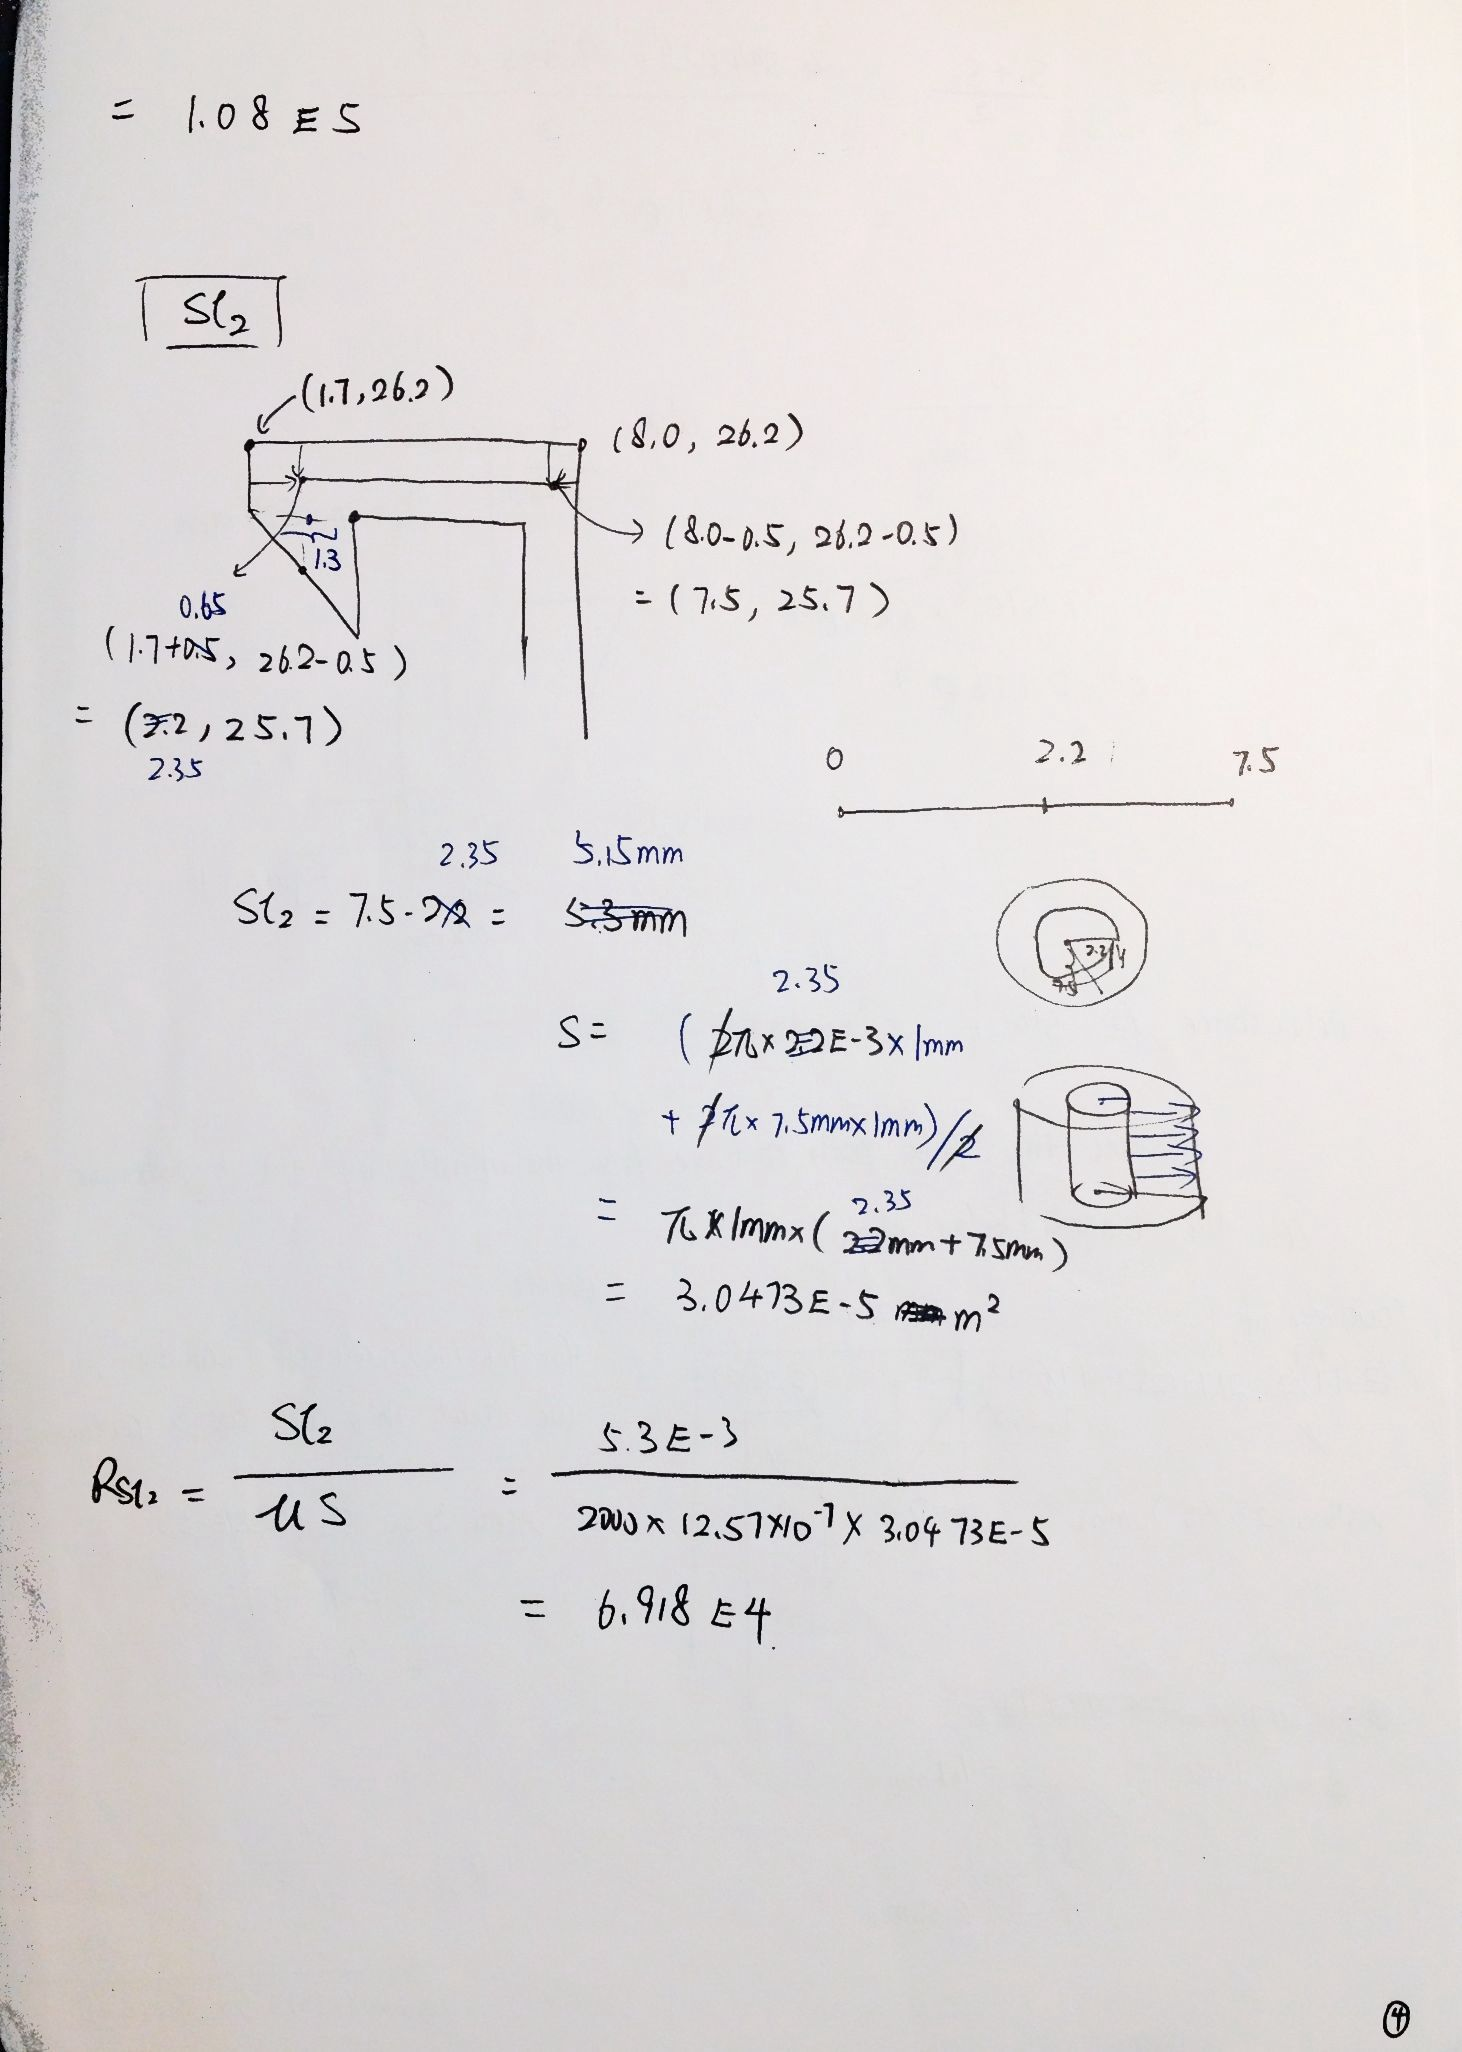 = 1.08 E5
Sl2
(1.7, 26.2)
(8.0, 26.2)
(8.0-0.5, 26.2-0.5)
= (7.5, 25.7)
1.3
0.65
(1.7+0.5, 26.2-0.5)
= (2.2, 25.7)
2.35
0 2.2 7.5
2.35 5.15mm
Sl2 = 7.5-2.2 = 5.3mm
2.2
7.5
2.35
S = (2π × 2.2E-3 × 1mm
+ 2π × 7.5mm × 1mm)/2
2.35
= π × 1mm × (2.2mm + 7.5mm)
= 3.0473E-5 m²
RSl2 = Sl2 / μS = 5.3E-3 / 2000 × 12.57×10⁻⁷ × 3.0473E-5
= 6.918 E4
④